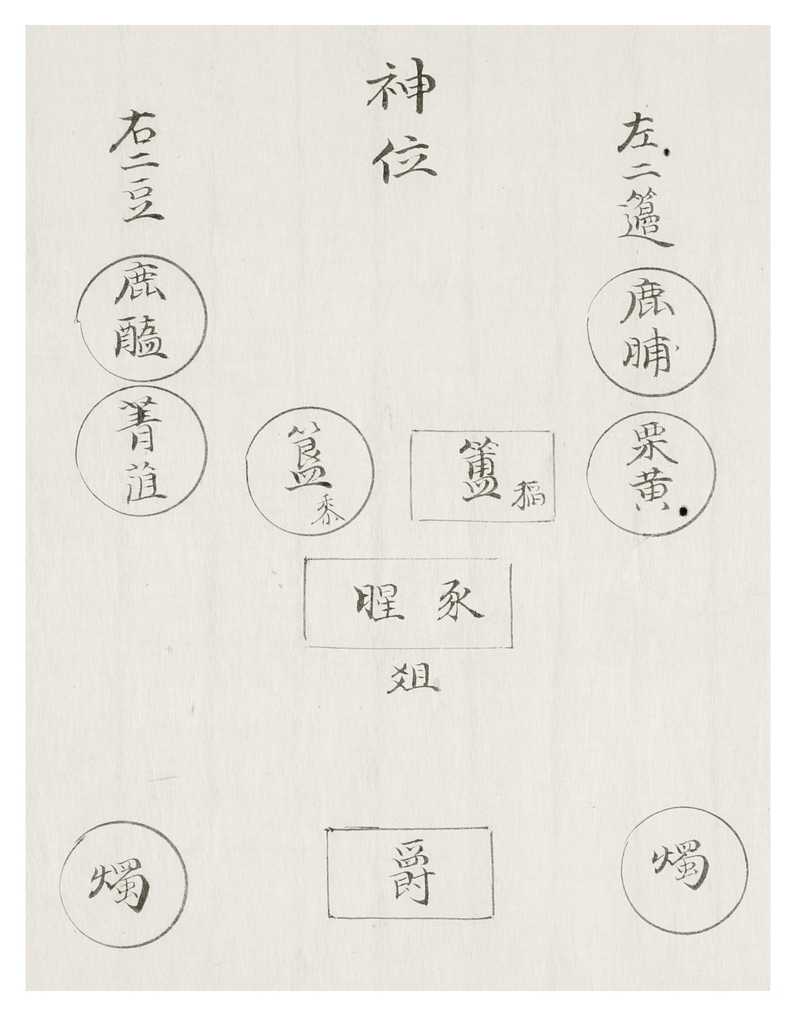 神位
左二籩
鹿脯
栗黃
右二豆
鹿醢
菁菹
簠稻
簋黍
腥豕
俎
爵
燭
燭